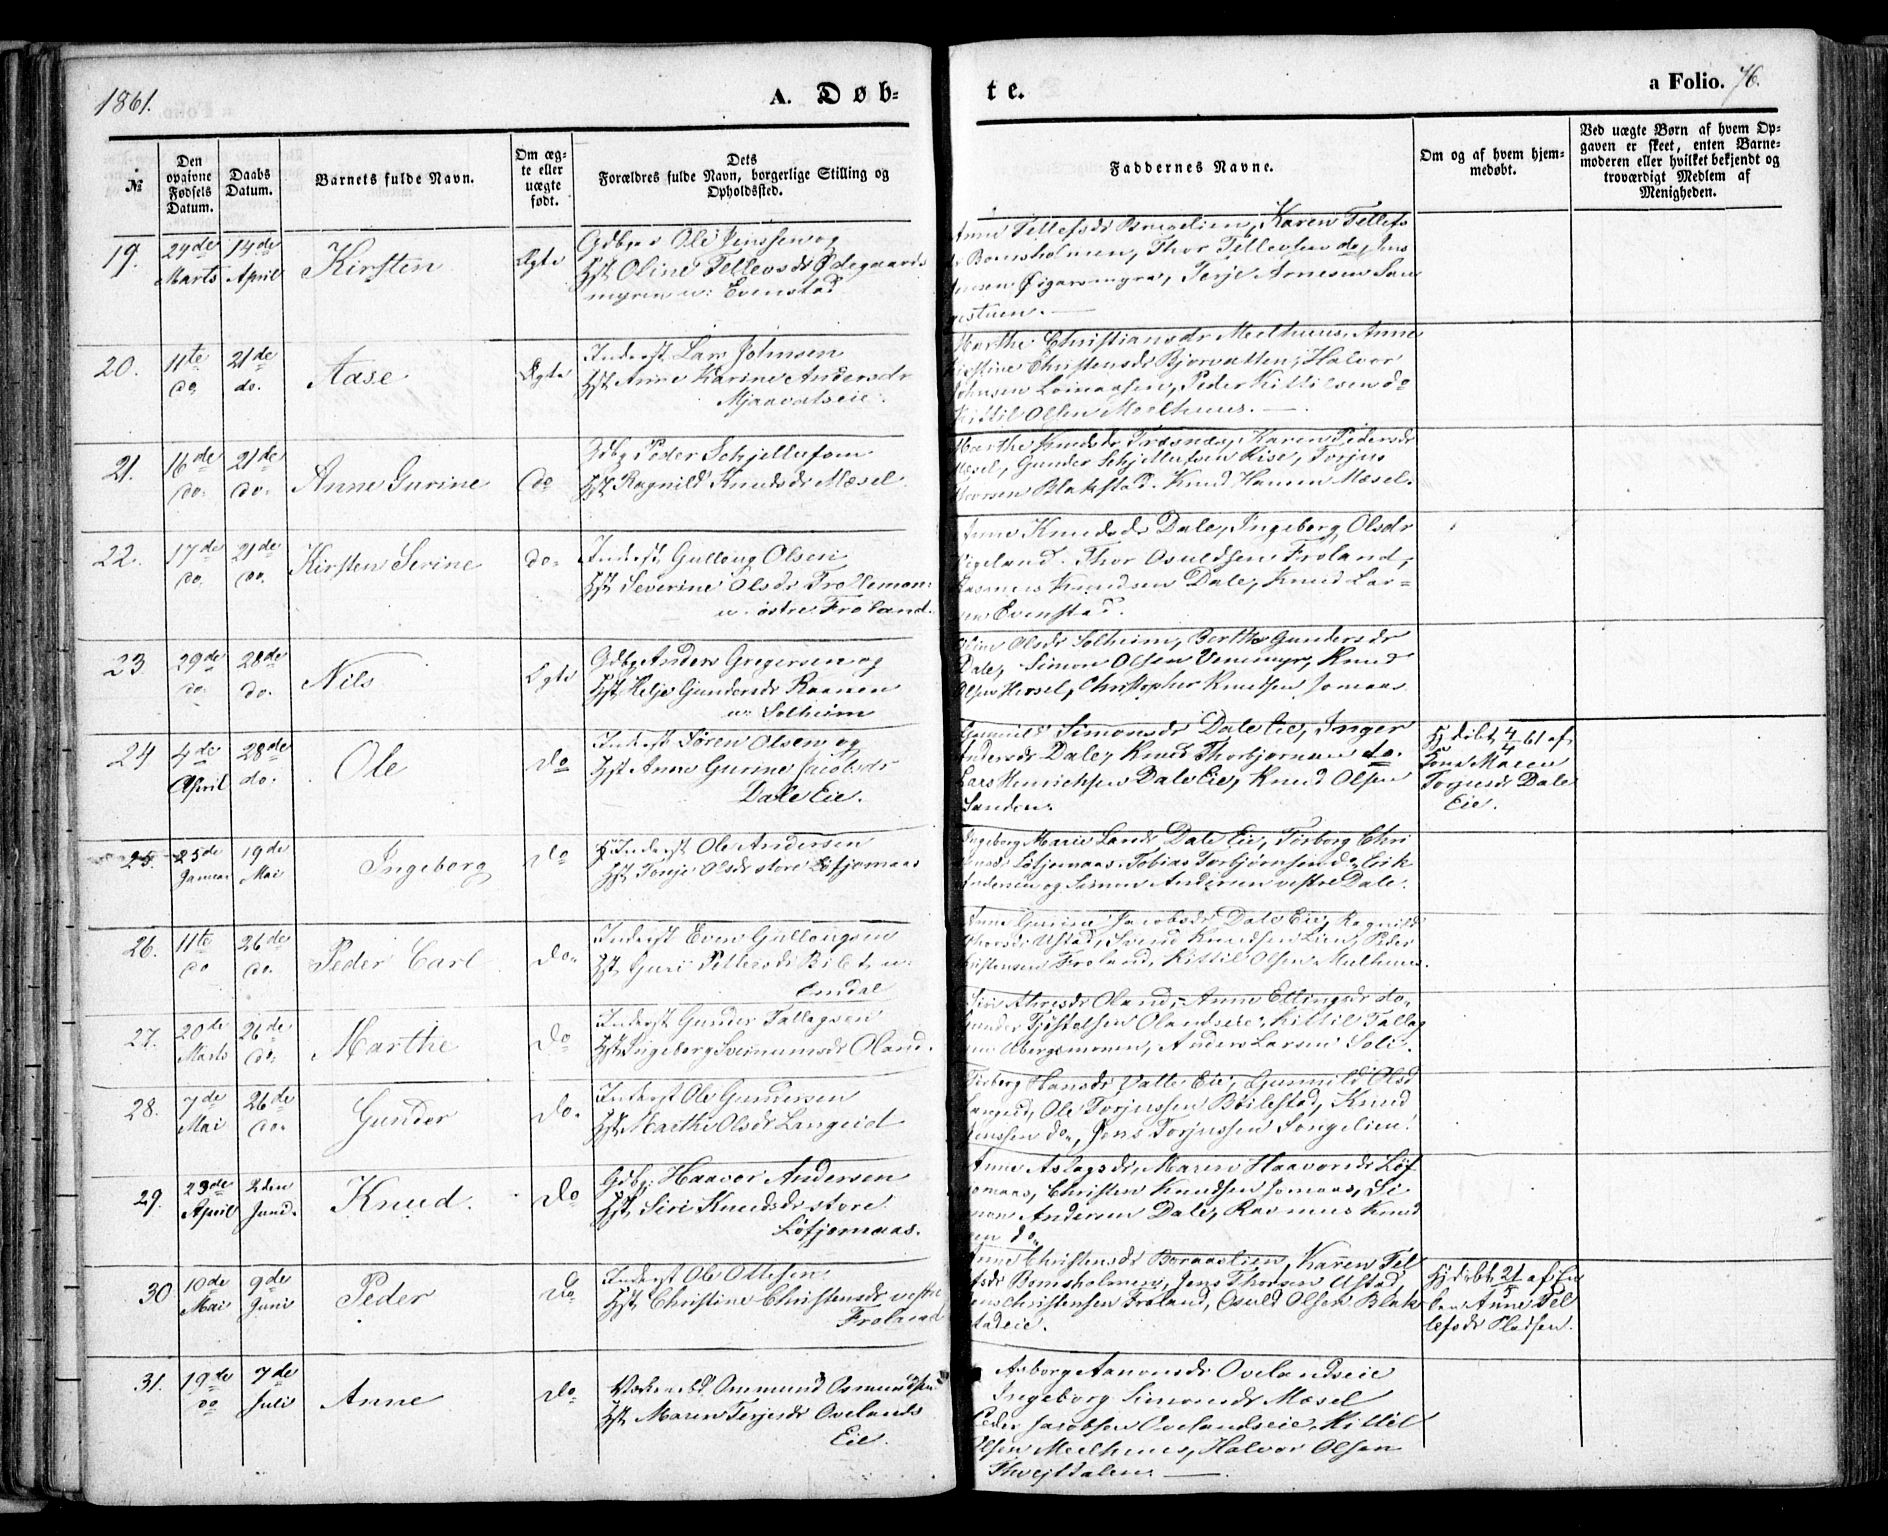 1861.
A. Døb-
te.
a Folio. 76.
№
Den opgivne Fødsels Datum.
Daabs Datum.
Barnets fulde Navn.
Om ægte eller uægte født.
Dets Forældres fulde Navn, borgerlige Stilling og Opholdssted.
Faddernes Navne.
Om og af hvem hjemmedøbt.
Ved uægte Børn af hvem Opgaven er skeet, enten Barnemoderen eller hvilket bekjendt og troværdigt Medlem af Menigheden.
19. 24de Marts 14de April Kirsten Ægte
Gdbgr Ole Jenssen og
Hst Oline Tellevsdr Ødegaards
myren u: Evenstad
Anne Tellefsdr Bregelien, Karen Tellefs
Bomsholmen, Thor Tellevsen do, Jens
Jensen Øigarsmyra, Terje Arnesen
20. 11te do. 21de do. Aase Ægte
Inderst Lars Johnsen
Hst Anne Karine Andersdr
Mjaavatseie.
Marthe Christiansdr Meelhuus, Anne
Kirstine Christensdr Bjorvatten, Halvor
Johnsen Lomaasen, Peder Kittilsen do
Kittil Olsen Meelhuus.
21. 16de do. 21de do. Anne Gurine do
Gdbg Peder Schjellufsen
Hst Ragnild Knudsdr Mæsel
Marthe Knudsdr Træsnæs, Karen Pedersdr
Mæsel, Gunder Schjellufsen Rise, Torjus
Thorsen Blakstad. Knud Hansen Mæsel.
22. 17de do. 21de do. Kirsten Serine do.
Inderst Gulloug Olsen
Hst Severine Olsdr Trollemon:
u. østre Froland.
Anne Knudsdr Dale, Ingeborg Olsdr
Vigeland. Thor Osuldsen Froland,
Rasmus Knudsen Dale, Knud Lar=
sen Evenstad.
23. 29de do. 28de do. Nils Ægte
Gdbg Anders Gregersen og
Hst Helje Gundersdr Raanen
u: Solheim
Oline Olsdr Solheim, Berthe Gundersdr
Dale, Simon Olsen Vennemyr, Knud
Olsen Hersel, Christopher Knudsen Jomaas
24 4de April 28de do. Ole do
Inderst Søren Olsen og
Hst Anne Gurine Jacobsdr
Dale Eie.
Gunnild Simonsdr Dale Eie, Inger
Andersdr Dale, Knud Thorbjornsen do.
Lars Henrichsen Dale Eie, Knud Olsen
Sanden.
Hjdøbt 4/4 61 af
Jone Maren
Torjusdr Dale
Eie.
25. 25de Januar 19de Mai Ingeborg do
Inderst Ole Andersen
Hst Tonje Olsdr store Løfjomaas
Ingeborg Marie Larsdr Dale Eie, Torborg Chri
stensdr Løfjomaas. Tobias Torbjørnsen do Erik
Andersen og Simon Andersen vestre Dale.
26. 11te do 26de do. Peder Carl do.
Inderst Even Gullougsen
Hst Guri Pettersdr Bilet u:
Omdal
Anne Gurine Jacobsdr Dale Eie, Ragnild
Thorsdr Ustad, Svend Knudsen Lien, Peder
Christensen Froland, Kittil Olsen Mulhuus.
27. 20de Marts 26de do. Marthe do
Inderst Gunder Tallagsen
Hst Ingeborg Sveinumsdr Oland.
Siri Alvesdr Oland, Anne Ellingsdr do,
Gunder Tjøstelsen Olandseie, Kittil Tallag
sen Obergsmonen, Anders Larsen Soli.
28. 7de Mai 26de do. Gunder do.
Inderst Ole Gundersen
Hst Marthe Olsdr Langeid
Torberg Hansdr Valle Eie, Gunnild Olsd
Langeid, Ole Torjussen Bøilestad, Knud
Jenssen do, Jens Torjussen Songelien.
29. 23de April 2den Juni Knud do
Gdbg. Haavor Andersen
Hst. Siri Knudsdr store
Løfjomaas.
Anne Aslagsdr, Maren Haavorsdr Løf
jomaas, Christen Knudsen Jomaas, Si
mon Andersen Dale, Rasmus Knud
sen do.
30 10de Mai 9de Juni Peder do
Inderst Ole Ottesen
Hst Christine Christensdr vestre
Froland
Anne Christensdr Boraaslien, Karen Tel
lefsdr Bomsholmen, Jens Thorsen Ustad,
Jens Christensen Froland, Osuld Olsen Blak
stadeie.
Hjdøbt 21/5 af En
ken Anne Tel
lefsdr Pladsen.
31. 19de do 7de Juli Anne do
Ommund Osmundsen
Hst Maren Terjesdr Ovelands
Eie.
Asborg Aanonsdr Ovelandseie
Ingeborg Simonsdr Mæsel
Peder Jacobsen Ovelandseie, Kittil
Olsen Meelhuus, Halvor Olsen
Thvejtdalen.